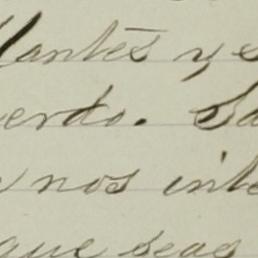 llantes y s
erdo. Sa
nos inte
que seas